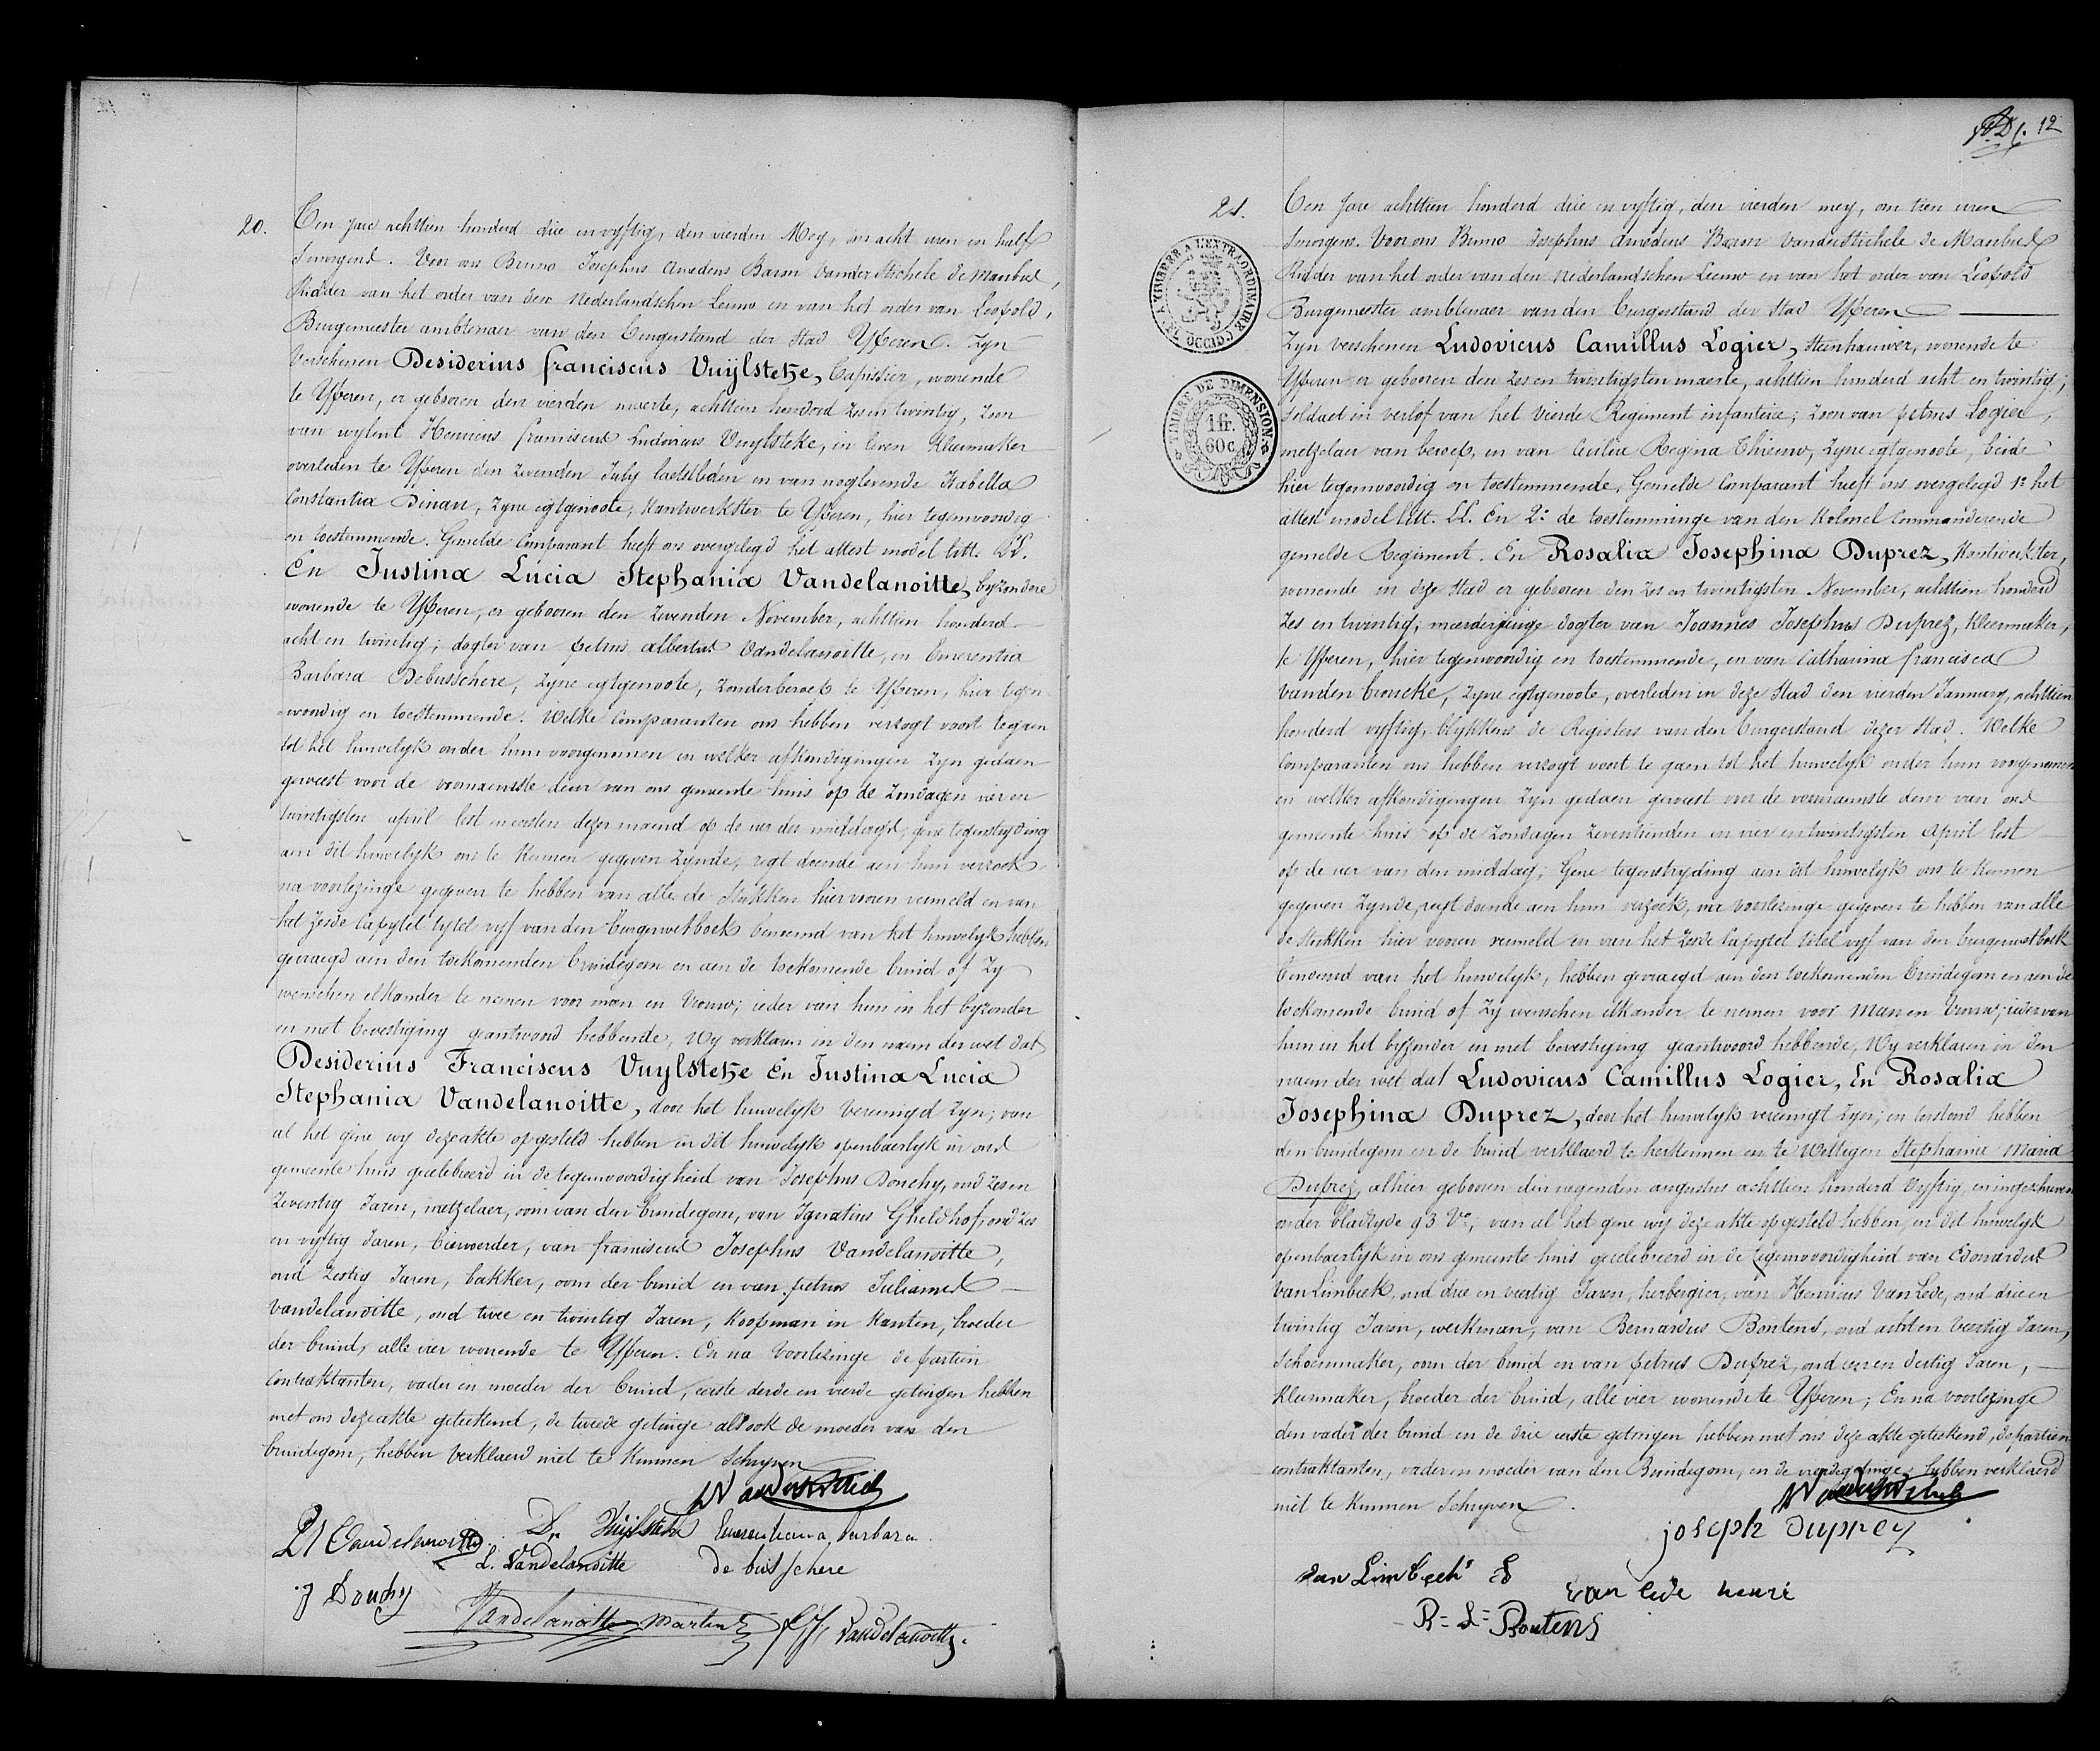 20.
Ten Jare achttien honderd drie en vyftig, den vierden Mey, om acht uren en half
Smorgens. Voor ons Bruno Josephus Amedeus Baron Vander Stichele de Maubus,
Ridder van het order van den Nederlandschen Leeuw en van het order van Leopold,
Burgemeester ambtenaer van den Burgerstand der Stad Yperen. Zyn
Verschenen Desiderius franciscus Vuÿlsteke, wonende
te Yperen, er geboren den vierden maerte, achttien honderd zes en twintig, Zoon
van wylent Henricus franciscus Ludovicus Vuylsteke, in leven Kleermaker
overleden te Yperen den July laetstleden en van noglevende Isabella
Constantia Dinau, Zyne egtgenoote, Kantwerkster te Yperen, hier tegenwoordig
en toestemmende. Gemelde Comparant heeft ons overgelegd het attest model litt. LL.
En Justina Lucia Stephania Vandelanoitte, byzondere
wonende te Yperen, er geboren den November, achttien honderd
acht en twintig; dogter van petrus albertus Vandelanoitte, en Emerentia
Barbara Debusschere, Zyne egtgenoote, Zonder beroep te Yperen, hier tegen-
woordig en toestemmende. Welke Comparanten ons hebben verzogt voort tegaen
tot het huwelyk onder hun voorgenomen en welker afkondigingen Zyn gedaen
geweest voor de voornaemste deur van ons gemeente huis op de Zondagen vier en
twintigsten april lest en eersten dezer maend op de uer des middags; gene tegenstryding
aen dit huwelyk ons te Kennen gegeven Zynde, regt doende aen hun verzoek
na voorlezinge gegeven te hebben van alle de Stukken hier vooren vermeld en van
het Zesde Capytel tytel vyf van den Burgerwetboek benoemd van het huwelyk hebben
gevraegd aen den toekomenden Bruidegom en aen de toekomende bruid of Zy
wenschen elkander te nemen voor man en Vrouw; ieder van hun in het byzonder
en met bevestiging geantwoord hebbende, Wy verklaren in den naem der wet dat
Desiderius Franciscus Vuylsteke En Justina Lucia
Stephania Vandelanoitte, door het huwelyk Vereenigd Zyn; van
al het gene wy deze akte opgesteld hebben en dit huwelyk openbaerlyk in ons
gemeente huis gecelebreerd in de tegenwoordigheid van Josephus Douchy, oud zes en
Zeventig Jaren, metzelaer, oom van den bruidegom, van Ignatius Gheldhof, oud Zes
en vyftig Jaren, bievoerder, van franciscus Josephus Vandelanoitte,
oud Zestig Jaren, bakker, oom der bruid en van petrus Julianus
Vandelanoitte, oud twee en twintig Jaren, Koopman in Kanten, broeder
der bruid, alle vier wonende te Yperen. En na Voorlezinge de partien
Contraktanten, vader en moeder der bruid, eerste derde en vierde getuigen hebben
met ons deze akte geteekend, de tweede getuige alsook de moeder van den
bruidegom, hebben Verklaerd niet te Kunnen Schryven
D. Vuÿlsteke Emerentiana barbara
P A Vandelanoitte
L. Vandelanoitte de busschere
J Douchy
Vandelanoitte Martin
F J Vandelanoitte

12
21.
TIMBRE A L'EXTRAORDINAIRE
TIMBRE DE DIMENSION
1 fr.
60 c.
Ten Jare achttien honderd drie en vyftig, den vierden mey, om tien uren
Smorgens. Voor ons Bruno Josephus Amedeus Baron Vander Stichele de Maubus
Ridder van het order van den Nederlandschen Leeuw en van het order van Leopold
Burgemeester ambtenaer van den burgerstand der Stad Yperen
Zyn verschenen Ludovicus Camillus Logier, Steenhauwer, wonende te
Yperen er geboren den Zes en twintigsten maerte, achttien honderd acht en twintig;
Soldaet in verlof van het Vierde Regiment infanterie; Zoon van petrus Logier,
metzelaer van beroep, en van Regina Thieuw, Zyne egtgenoote, beide
hier tegenwoordig en toestemmende. Gemelde Comparant heeft ons overgelegd 1º het
attest model litt. LL. En 2º de toestemminge van den Kolonel Commanderende
gemelde Regiment. En Rosalia Josephina Duprez, Kantwerkster,
wonende in deze Stad er geboren den Zes en twintigsten November, achttien honderd
Zes en twintig; meerderjarige dogter van Joannes Josephus Duprez, Kleermaker,
te Yperen, hier tegenwoordig en toestemmende, en van Catharina francisca
vanden broucke, Zyne egtgenoote, overleden in deze Stad den vierden January, achttien
honderd vyftig, blykkens de Registers van den burgerstand dezer Stad. Welke
Comparanten ons hebben verzogt voort te gaen tot het huwelyk onder hun voorgenomen
en welker afkondigingen Zyn gedaen geweest voor de voornaemste deur van ons
gemeente huis op de Zondagen Zeventienden en vier en twintigsten April lest
op de uer van den middag; Gene tegenstryding aen dit huwelyk ons te Kennen
gegeven Zynde, regt doende aen hun verzoek, na voorlezinge gegeven te hebben van alle
de Stukken hier vooren vermeld en van het Zesde Capytel titel vyf van den burgerwetboek
benoemd van het huwelyk, hebben gevraegd aen den toekomenden bruidegom en aen de
toekomende bruid of Zy wenschen elkander te nemen voor Man en Vrouw; ieder van
hun in het byzonder en met bevestiging geantwoord hebbende, Wy verklaren in den
naem der wet dat Ludovicus Camillus Logier, En Rosalia
Josephina Duprez, door het huwelyk vereenigt Zyn; en terstond hebben
den bruidegom en de bruid verklaerd te herkennen en te Wettigen Stephanie Maria
Duprez, alhier geboren den negenden augustus achttien honderd Vyftig, en ingeschreven
onder bladzyde 93 Vº; van al het gene wy deze akte opgesteld hebben, en dit huwelyk
openbaerlyk in ons gemeente huis gecelebreerd in de tegenwoordigheid van Edouardus
Van Limbeek, oud drie en veertig Jaren, herbergier, van Henricus Van Lede, oud drie en
twintig Jaren, werkman, van Bernardus Boutens, oud acht en Veertig Jaren,
Schoenmaker, oom der bruid en van petrus Duprez, oud een en dertig Jaren,
Kleermaker, broeder der bruid, alle vier wonende te Yperen; En na voorlezinge
den vader der bruid en de drie eerste getuigen hebben met ons deze akte geteekend, de partien
contraktanten, vader en moeder van den Bruidegom, en de vierde getuige, hebben verklaerd
niet te Kunnen Schryven.
joseph Duprey
Van Lede henri
B = L = Boutens